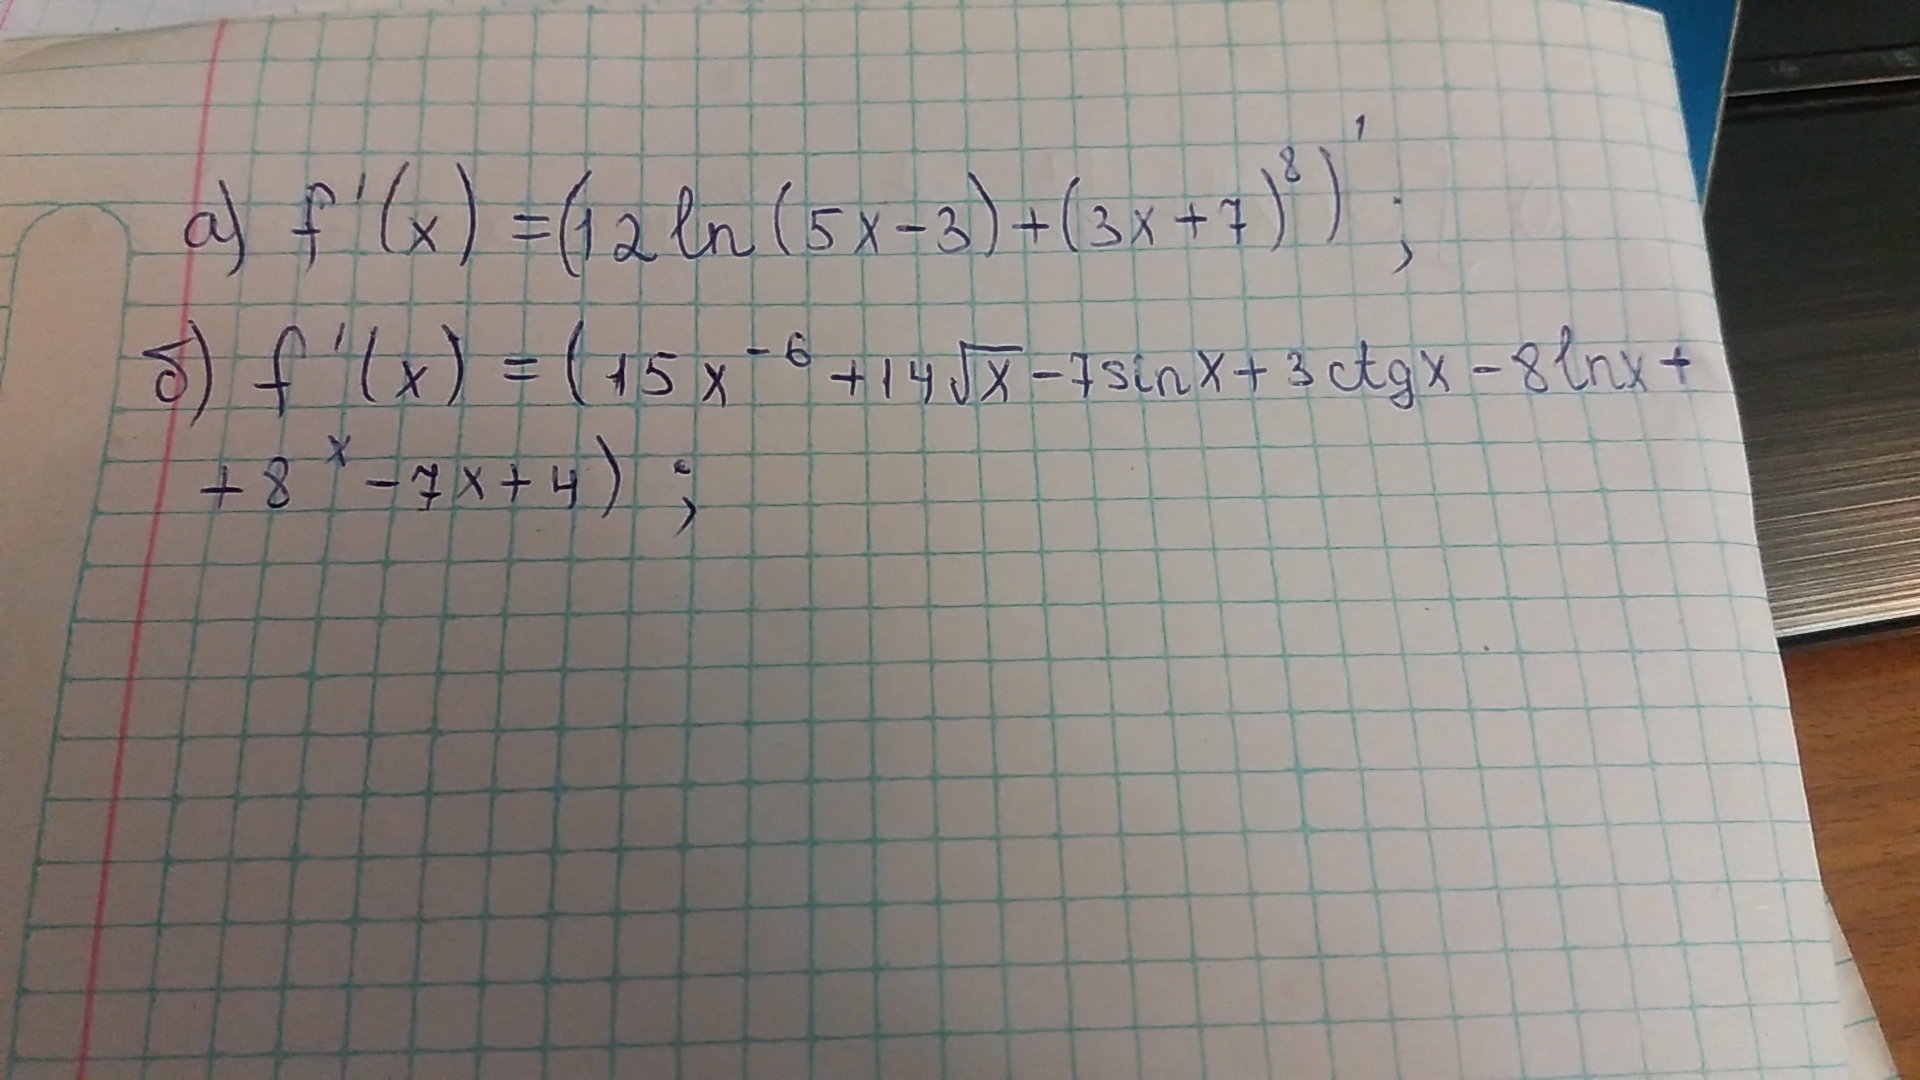 а) f'(x) = (12 ln (5x-3) + (3x+7)⁸)' ;
б) f'(x) = (15x⁻⁶ + 14√x - 7sinx + 3ctgx - 8lnx +
+ 8ˣ - 7x + 4) ;